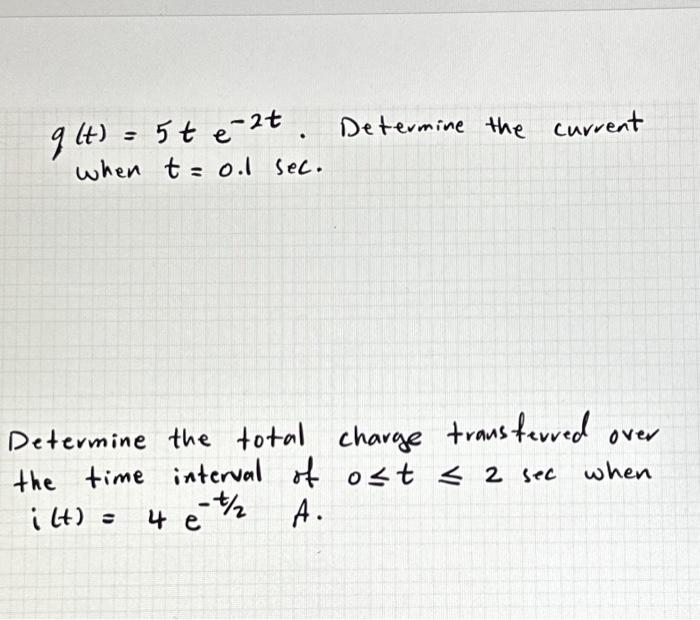 q(t) = 5t e^-2t. Determine the current
when t = 0.1 sec.
Determine the total charge transferred over
the time interval of 0 ≤ t ≤ 2 sec when
i(t) = 4 e^-t/2 A.